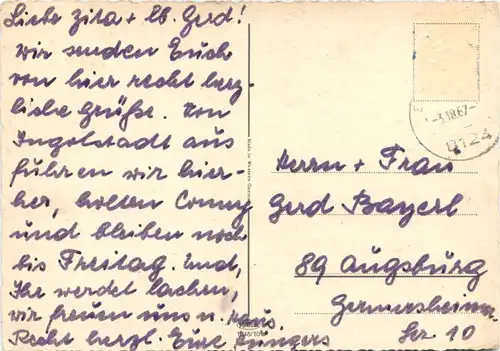 Liebe Zita + lb. Gerd!
Wir senden Euch
von hier recht herz-
liche Grüße. Von
Ingolstadt aus
fuhren wir hier-
her, holten Conny
und bleiben noch
bis Freitag. Und,
Ihr werdet lachen,
wir freuen uns n. Haus
Recht herzl. Eure
Herrn + Frau
Gerd Bayerl
89 Augsburg
Germersheimer-
Str 10